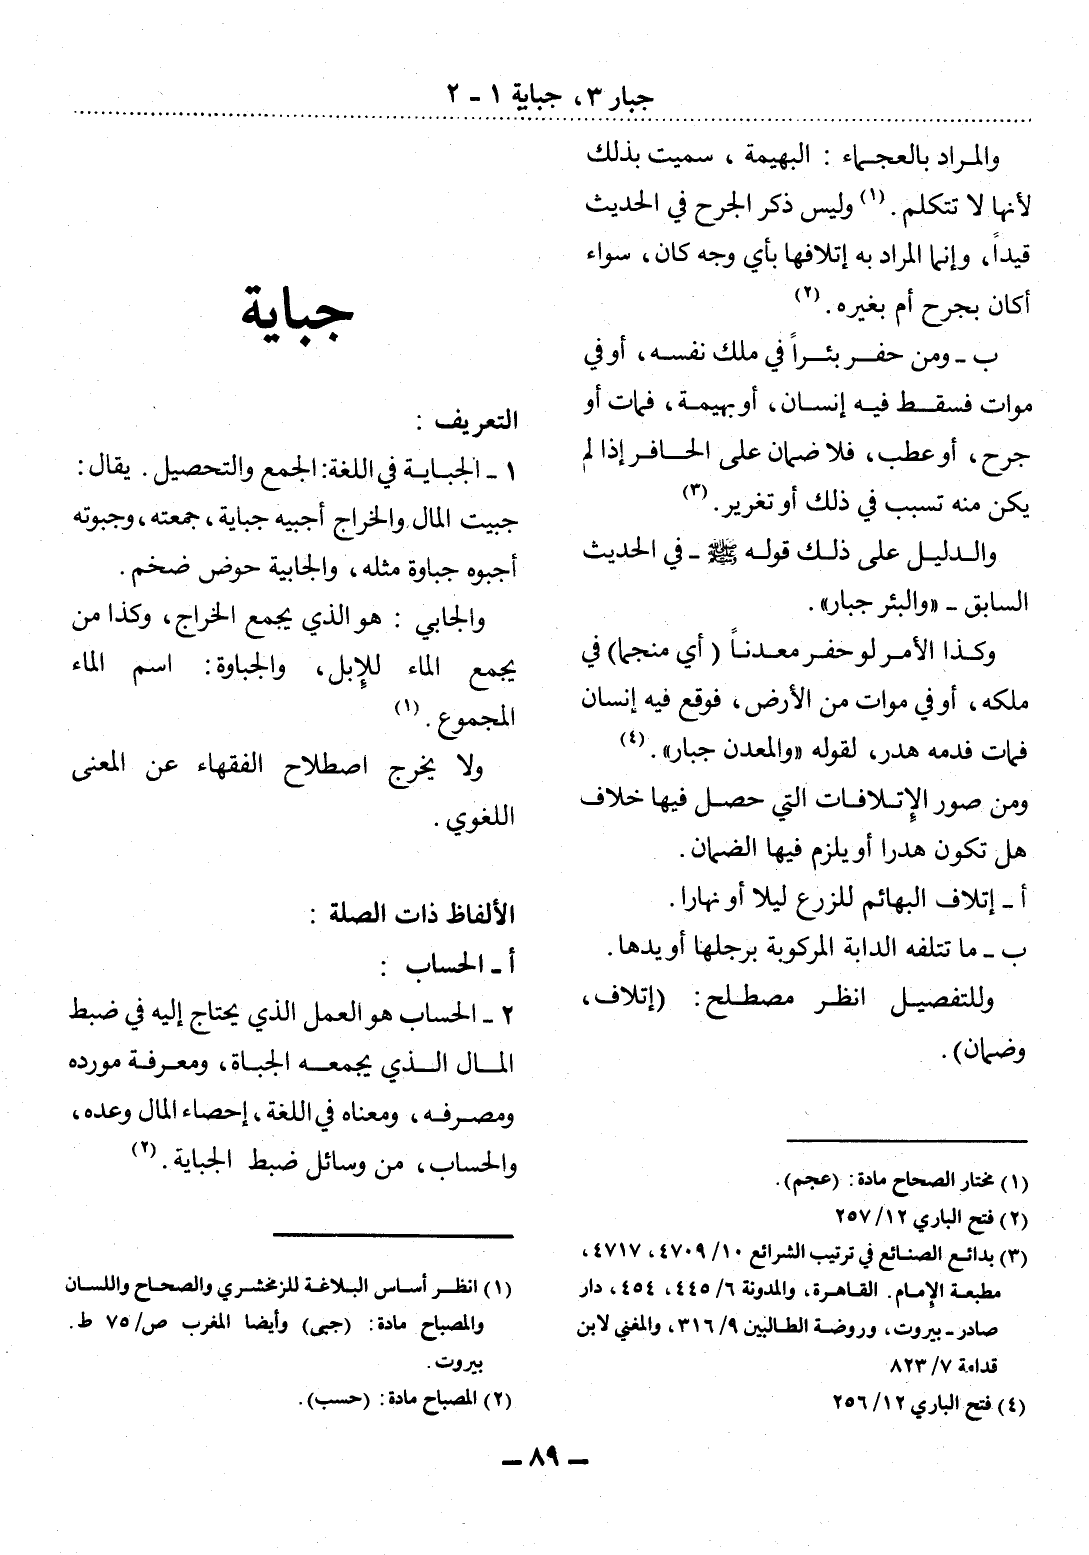 جبار ٣، جباية ١ - ٢
والمراد بالعجماء : البهيمة ، سميت بذلك
لأنها لا تتكلم . (١) وليس ذكر الجرح في الحديث
قيداً، وإنما المراد به إتلافها بأي وجه كان، سواء
أكان بجرح أم بغيره . (٢)
ب - ومن حفر بئراً في ملك نفسه، أو في
موات فسقط فيه إنسان، أو بهيمة، فمات أو
جرح، أو عطب، فلا ضمان على الحافر إذا لم
يكن منه تسبب في ذلك أو تغرير. (٣)
والدليل على ذلك قوله ﷺ - في الحديث
السابق - «والبئر جبار» .
وكذا الأمر لو حفر معدناً ( أي منجما) في
ملكه، أو في موات من الأرض، فوقع فيه إنسان
فمات فدمه هدر، لقوله «والمعدن جبار» . (٤)
ومن صور الإتلافات التي حصل فيها خلاف
هل تكون هدرا أو يلزم فيها الضمان .
أ - إتلاف البهائم للزرع ليلا أو نهارا .
ب - ما تتلفه الدابة المركوبة برجلها أو يدها .
وللتفصيل انظر مصطلح : (إتلاف،
وضمان) .
(١) مختار الصحاح مادة : (عجم) .
(٢) فتح الباري ١٢/ ٢٥٧
(٣) بدائع الصنائع في ترتيب الشرائع ١٠/ ٤٧٠٩، ٤٧١٧،
مطبعة الإمام . القاهرة، والمدونة ٦/ ٤٤٥، ٤٥٤، دار
صادر - بيروت، وروضة الطالبين ٩/ ٣١٦، والمغني لابن
قدامة ٧/ ٨٢٣
(٤) فتح الباري ١٢/ ٢٥٦
جباية
التعريف :
١ - الجباية في اللغة : الجمع والتحصيل . يقال :
جبيت المال والخراج أجبيه جباية، جمعته، وجبوته
أجبوه جباوة مثله، والجابية حوض ضخم .
والجابي : هو الذي يجمع الخراج، وكذا من
يجمع الماء للإبل، والجباوة : اسم الماء
المجموع . (١)
ولا يخرج اصطلاح الفقهاء عن المعنى
اللغوي .
الألفاظ ذات الصلة :
أ - الحساب :
٢ - الحساب هو العمل الذي يحتاج إليه في ضبط
المال الذي يجمعه الجباة، ومعرفة مورده
ومصرفه، ومعناه في اللغة، إحصاء المال وعده،
والحساب، من وسائل ضبط الجباية . (٢)
(١) انظر أساس البلاغة للزمخشري والصحاح واللسان
والمصباح مادة : (جبى) وأيضا المغرب ص/ ٧٥ ط .
بيروت .
(٢) المصباح مادة : (حسب) .
- ٨٩ -